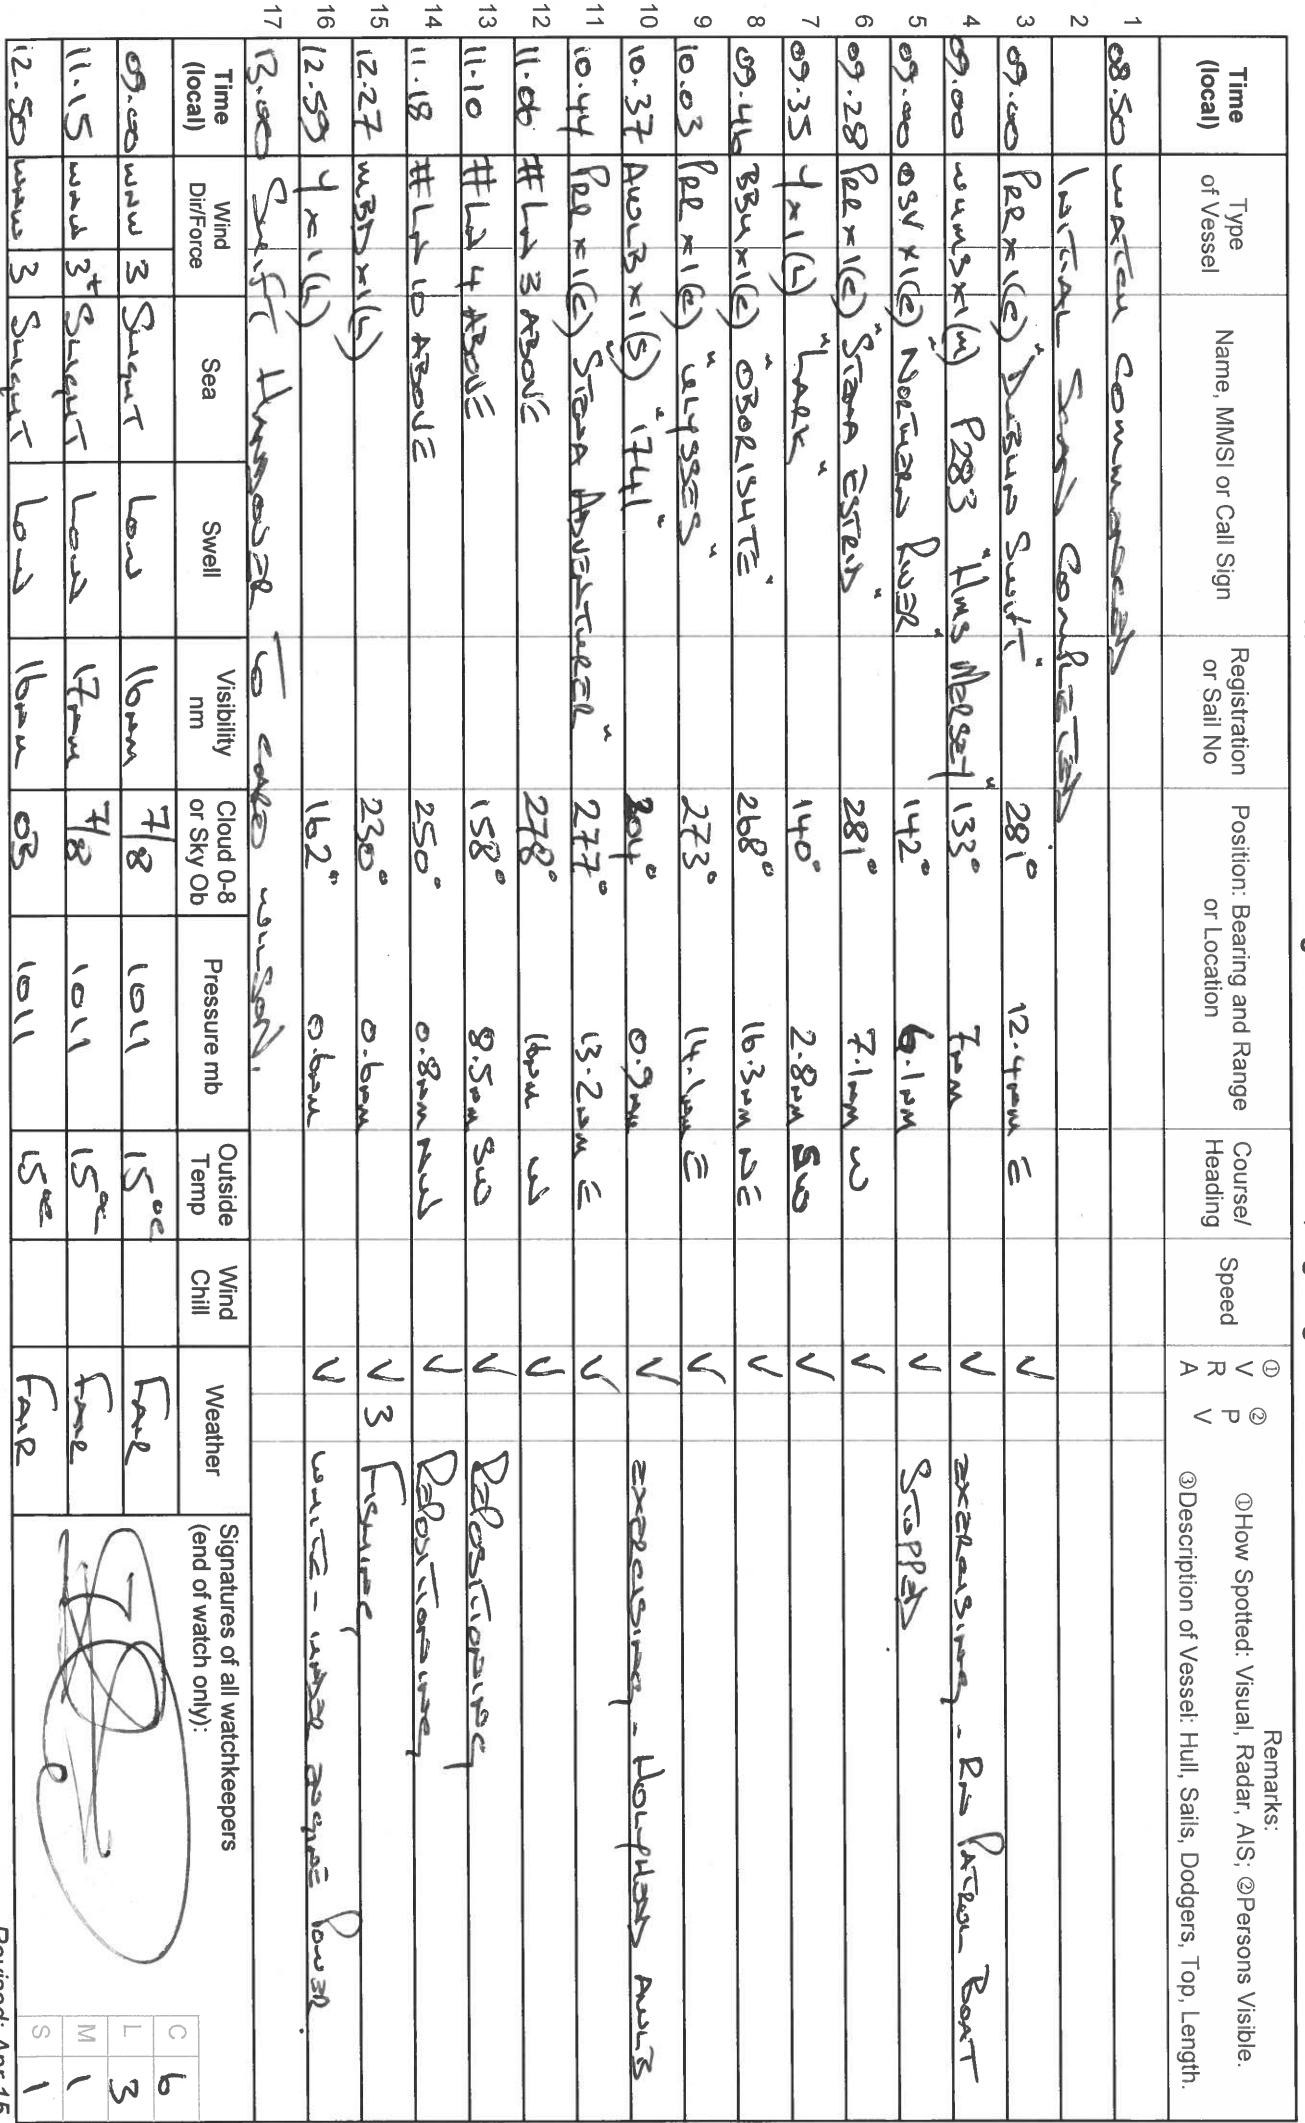 Time (local) Type of Vessel Name, MMSI or Call Sign Registration or Sail No Position: Bearing and Range or Location Course/ Heading Speed ① V R A ② P V Remarks: ①How Spotted: Visual, Radar, AIS; ②Persons Visible. ③Description of Vessel: Hull, Sails, Dodgers, Top, Length.
1 08.50 WATCH COMMENCED
2 INITIAL SCAN COMPLETED
3 09.00 PRR x1(C) "DUBLIN SWIFT" 281° 12.4NM E V
4 09.00 WUMS x1(M) P283 "HMS MERSEY" 133° 7NM V EXERCISING - RN PATROL BOAT
5 09.00 OSV x1(C) "NORTHERN RIVER" 142° 6.1NM V STOPPED
6 09.28 PRR x1(C) "STENA ESTRID" 281° 7.1NM W V
7 09.35 Y x1(L) "LARK" 140° 2.8NM SW V
8 09.46 BBU x1(C) "OBORISHTE" 268° 16.3NM NE V
9 10.03 PRR x1(C) "ULYSSES" 273° 14.1NM E V
10 10.37 AWLB x1(S) "1741" 304° 0.9NM V EXERCISING - HOLYHEAD AWLB
11 10.44 PRR x1(C) "STENA ADVENTURER" 277° 13.2NM E V
12 11.06 #LN 3 ABOVE 278° 16NM W V
13 11.10 #LN 4 ABOVE 158° 8.5NM SW V REPOSITIONING
14 11.18 #LN 10 ABOVE 250° 0.8NM NW V REPOSITIONING
15 12.27 MBD x1(L) 230° 0.6NM V 3 FISHING
16 12.59 Y x1(L) 162° 0.6NM V WHITE - UNDER ENGINE POWER.
17 13.00 SHIFT HANDOVER TO CARO WILSON.
Time (local) Wind Dir/Force Sea Swell Visibility nm Cloud 0-8 or Sky Ob Pressure mb Outside Temp Wind Chill Weather Signatures of all watchkeepers (end of watch only):
09.00 WNW 3 SLIGHT LOW 16NM 7/8 1011 15°C FAIR
11.15 WNW 3+ SLIGHT LOW 17NM 7/8 1011 15°C FAIR
12.50 WNW 3 SLIGHT LOW 16NM 03 1011 15°C FAIR
C 6
L 3
M 1
S 1
Revised: Apr 15